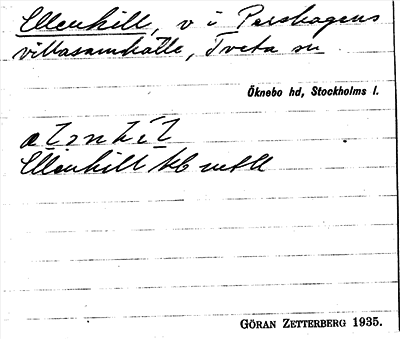 Ellenhill, v i Pershagens
villasamhälle, Tveta sn
Öknebo hd, Stockholms l.
Ellenhill
GÖRAN ZETTERBERG 1935.